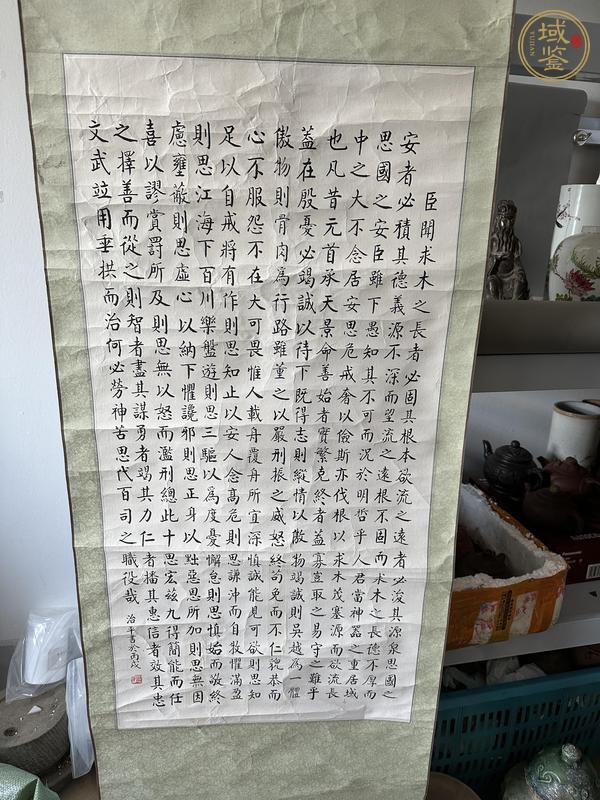 臣聞求木之長者必固其根本欲流之遠者必浚其源泉思國之
安者必積其德義源不深而望流之遠根不固而求木之長德不厚而
思國之安臣雖下愚知其不可而況於明哲乎人君當神器之重居域
中之大不念居安思危戒奢以儉斯亦伐根以求木茂塞源而欲流長
也凡昔元首承天景命善始者實繁克終者蓋寡豈取之易守之難乎
蓋在殷憂必竭誠以待下既得志則縱情以傲物竭誠則吳越為一體
傲物則骨肉為行路雖董之以嚴刑振之威怒終苟免而不仁貌恭而
心不服怨不在大可畏惟人載舟覆舟所宜深慎誠能見可欲則思知
足以自戒將有作則思知止以安人念高危則思謙沖而自牧懼滿盈
則思江海下百川樂盤遊則思三驅以為度憂懈怠則思慎始而敬終
慮壅蔽則思虛心以納下懼讒邪則思正身以黜惡恩所加則思無因
喜以謬賞罰所及則思無以怒而濫刑總此十思宏茲九得簡能而任
之擇善而從之則智者盡其謀勇者竭其力仁者播其惠信者效其忠
文武竝用垂拱而治何必勞神苦思代百司之職役哉
治平書於丙戌
域鉴
YUJIAN